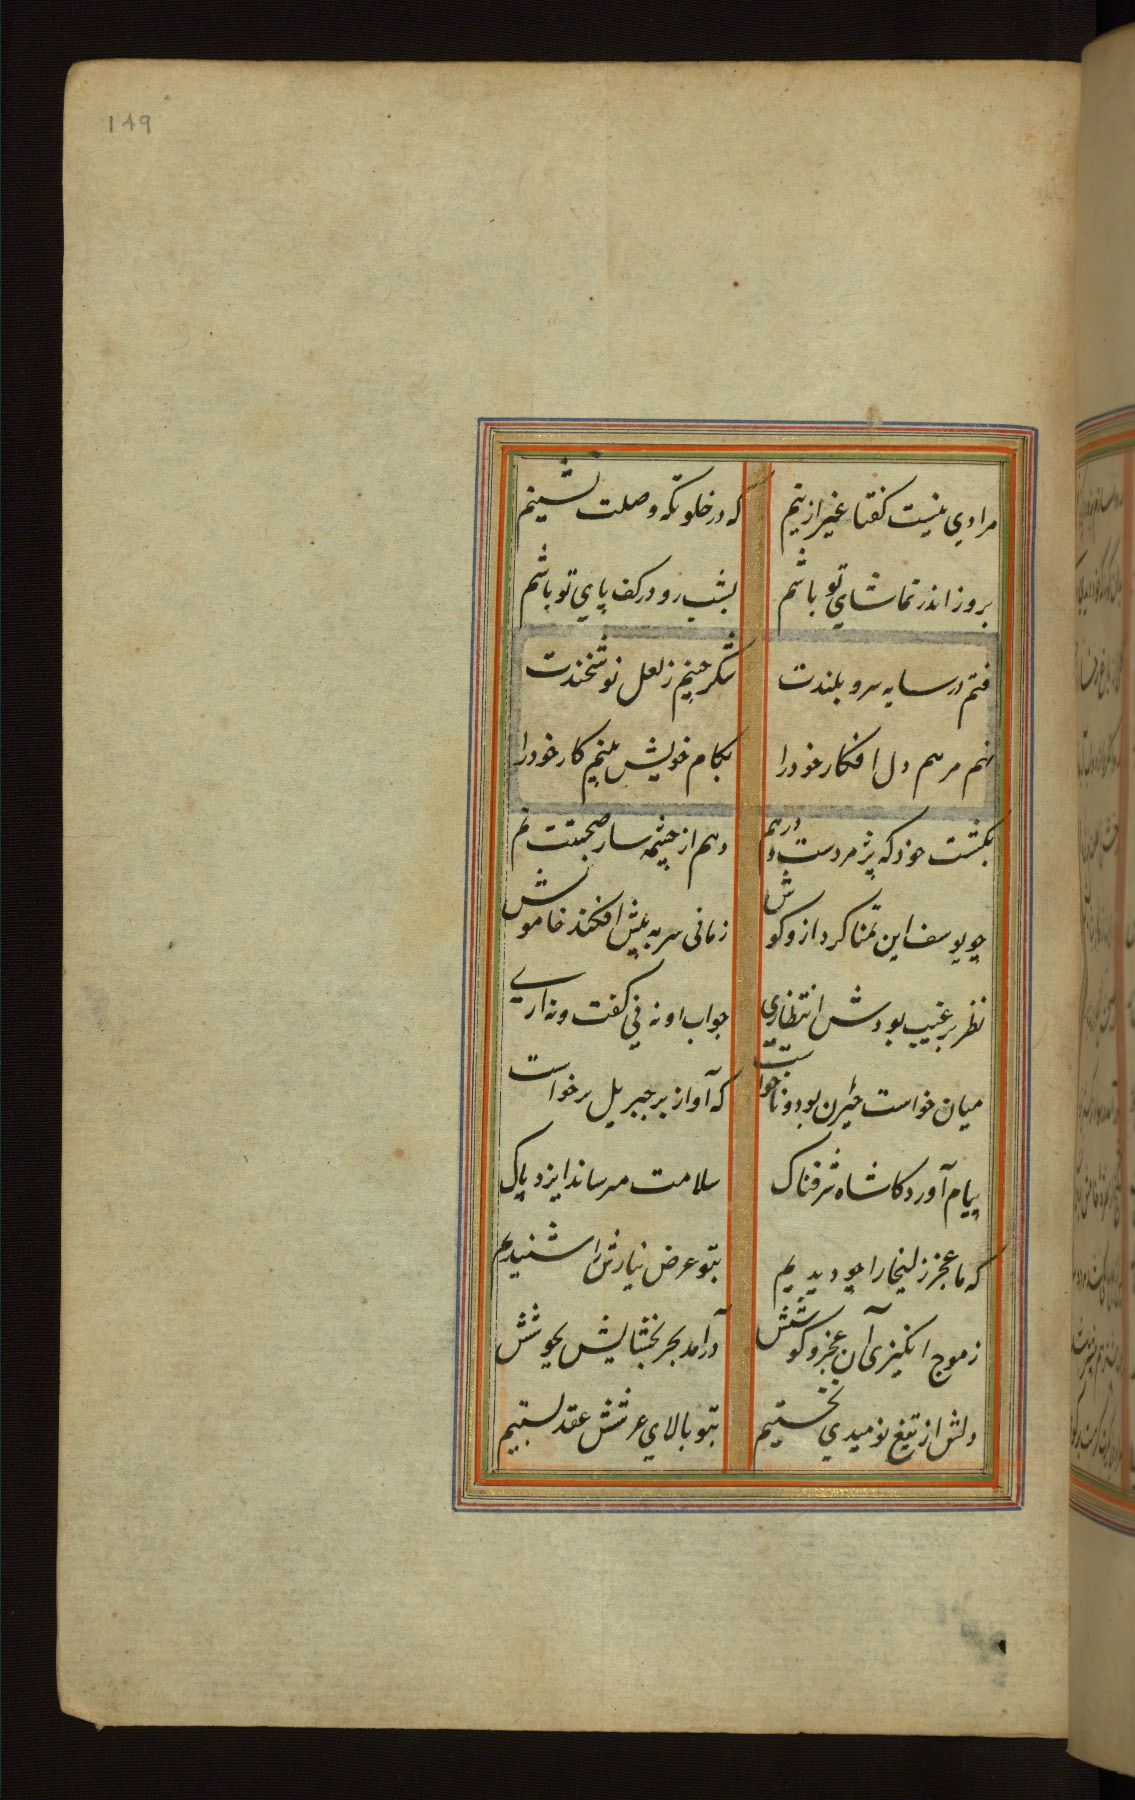 149
مرادی نیست گفتا غیر ازینم که در خلوتگه وصلت نشینم
بروز اندر تماشای تو باشم بشب رو در کف پای تو باشم
فتم در سایه سرو بلندت شکر چینم ز لعل نوشخندت
نهم مرهم دل افکار خود را بکام خویش بینم کار خود را
بکشت خود که پژمردست و درهم دهم از چشمه سار صحبتت نم
چو یوسف این تمنا کرد ازو گوش زمانی سر به پیش افکند خاموش
نظر بر غیب بودش انتظاری جواب او نه نی گفت و نه آری
میان خواست حیران بود و ناخواست که آواز پر جبریل برخواست
پیام آورد کای شاه شرفناک سلامت میرساند ایزد پاک
که ما عجز زلیخا را چو دیدیم بتو عرض نیازش را شنیدیم
ز موج انگیزی آن عجز و کوشش درآمد بحر بخشایش بجوشش
دلش از تیغ نومیدی نخستیم بتو بالای عرشش عقد بستیم